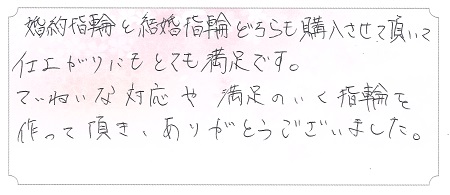 婚約指輪と結婚指輪どちらも購入させて頂いて
仕上がりにもとても満足です。
ていねいな対応や満足のいく指輪を
作って頂き、ありがとうございました。